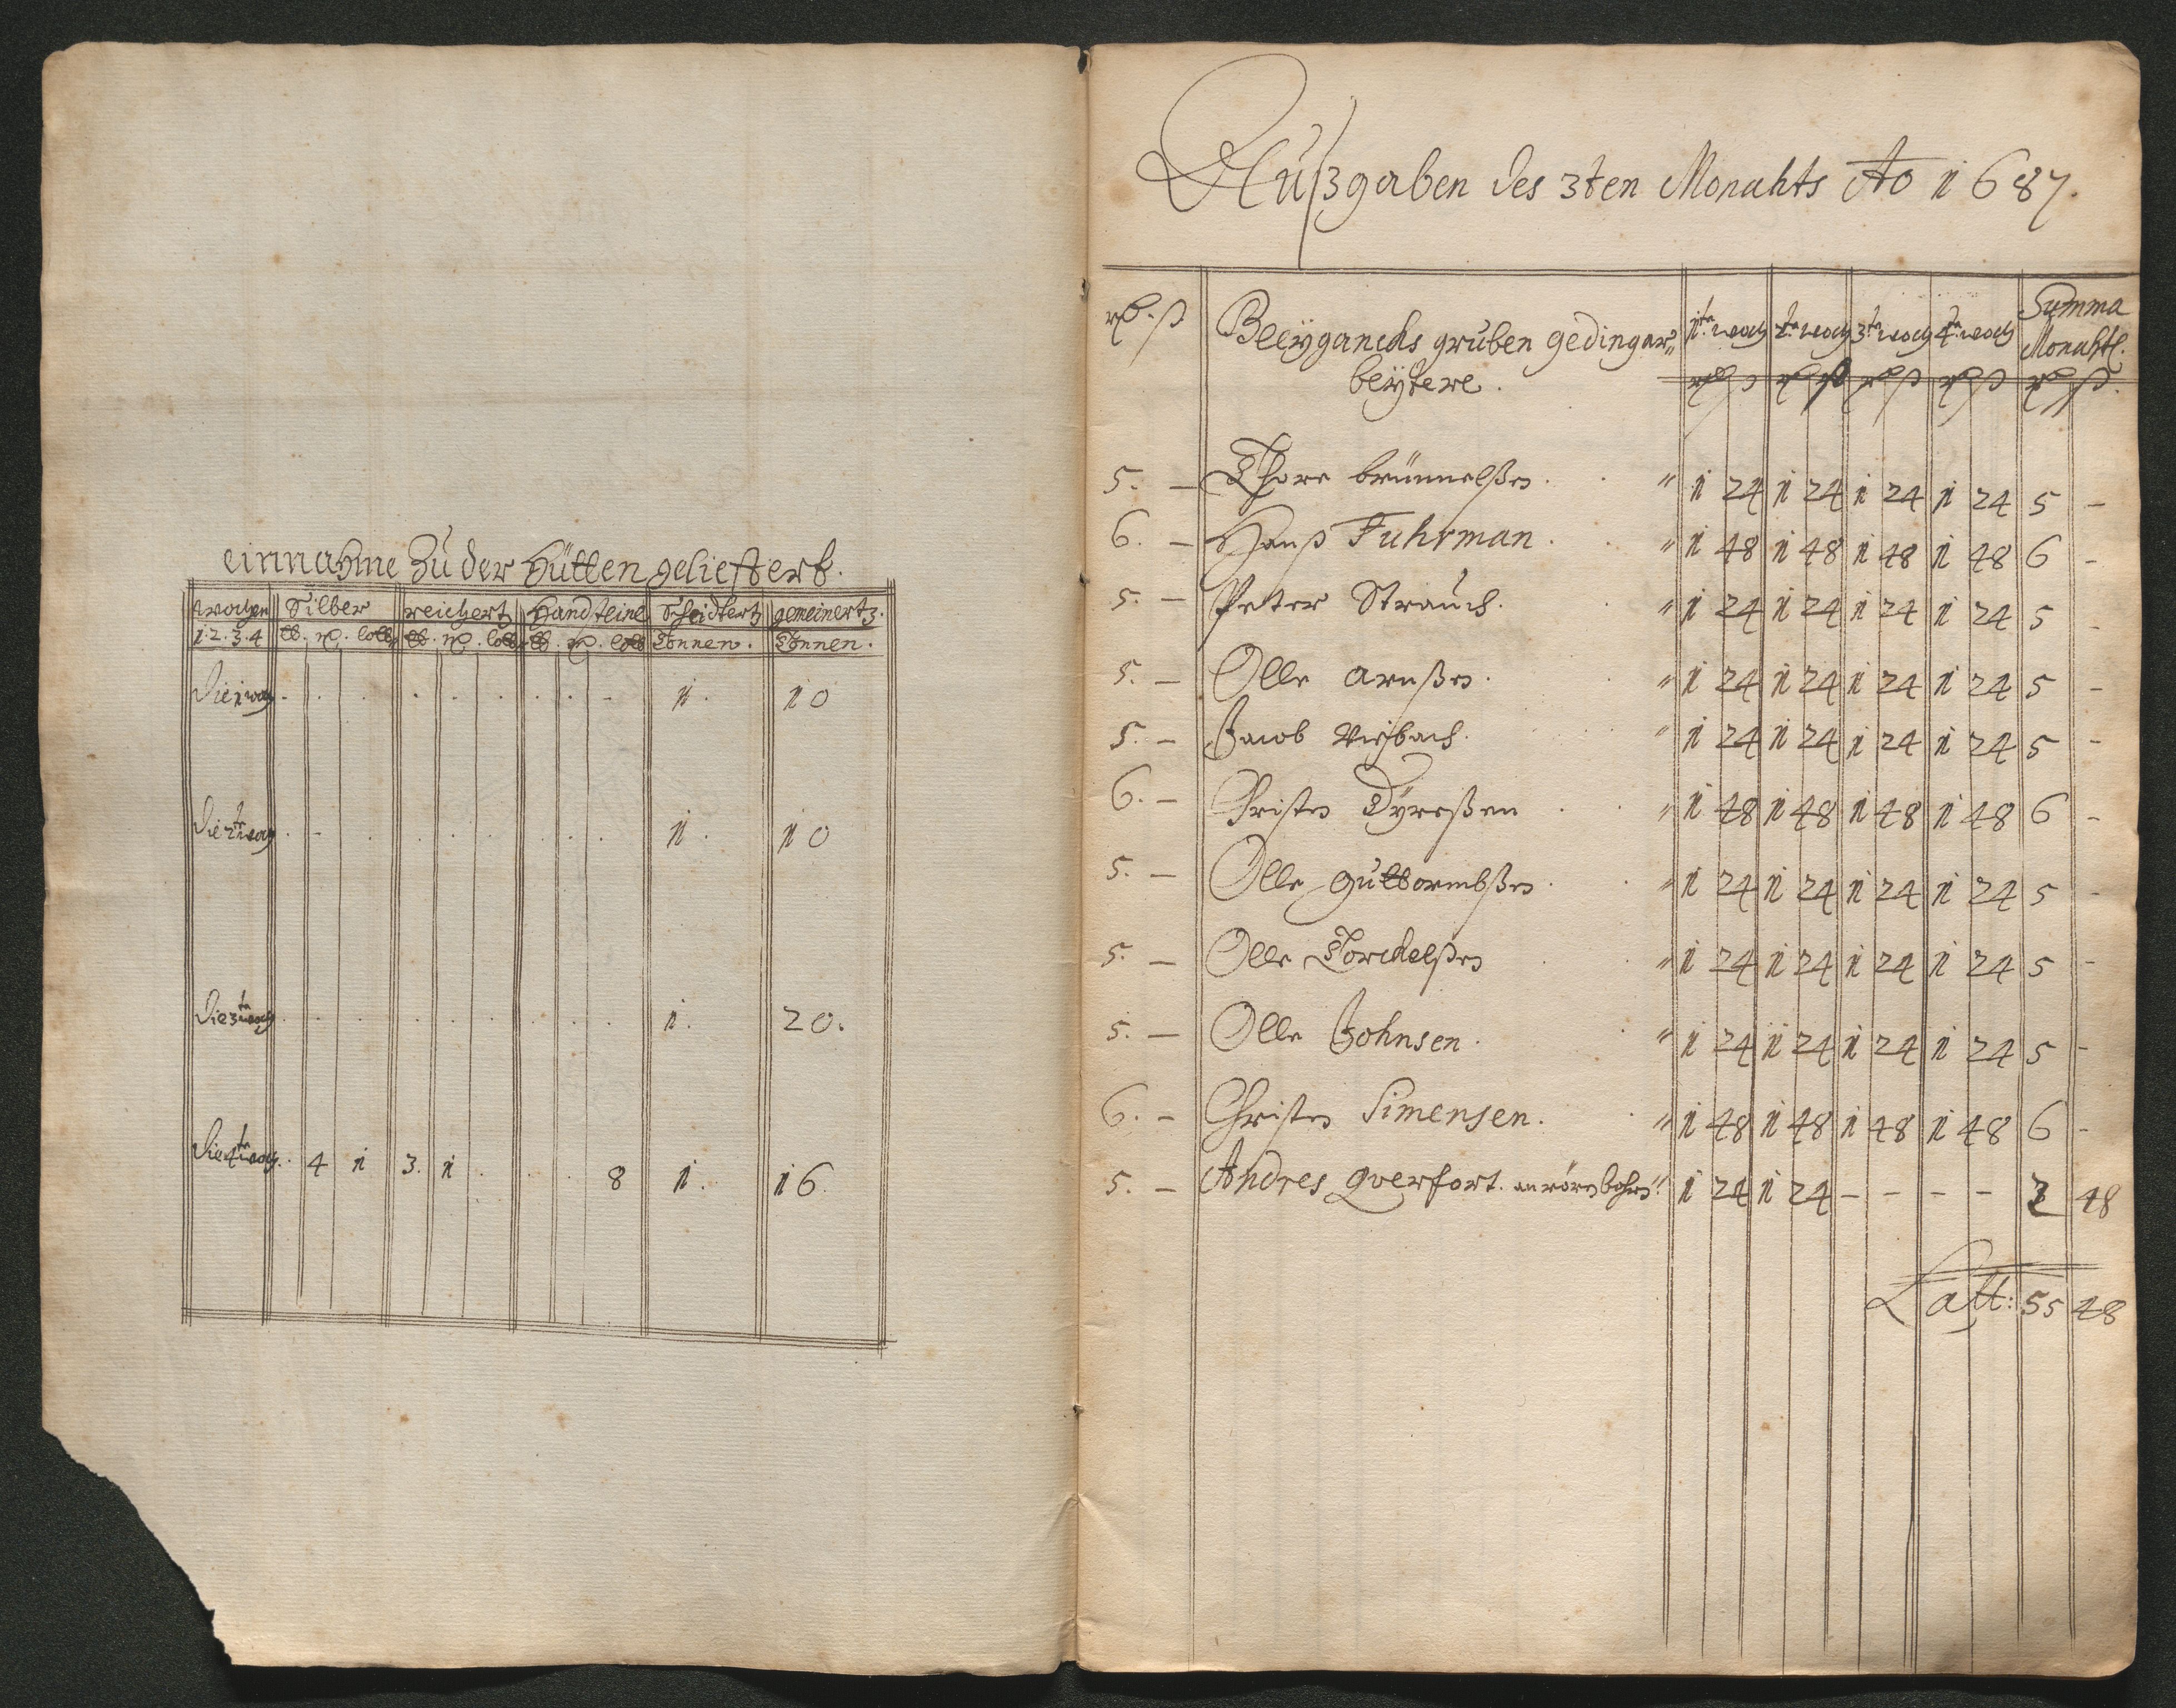 einnahme Zu der Hütten gelieftert.
wochen Silber reichertz Handsteine Scheidtertz gemeinertz.
1.2.3.4 lb. . loth lb. . loth lb. . loth Tonnen. Tonnen.
Die 1 woch . . . . . . . . - 1. 10
Die 2te woch . - . . . . . . . 1. 10
Die 3te woch . . . . . . . . . 1. 20.
Die 4te woch . 4 1 3. 1 . . . 8 1. 16
Außgaben des 3ten Monahts Ao 1687.
rd. ß Bleÿgancks gruben gedingar„ 1te woch 2te woch 3te woch 4te woch Summa
beÿtere. Monahtl.
rd ß rd ß rd ß rd ß rd ß.
5. — Thore brünnelßen . . " 1 24 1 24 1 24 1 24 5 -
6. — Hanß Fuhrman . . " 1 48 1 48 1 48 1 48 6 -
5. — Peter Strauch. . " 1 24 1 24 1 24 1 24 5 -
5. — Olle arnßen. . " 1 24 1 24 1 24 1 24 5 -
5. — Jacob . " 1 24 1 24 1 24 1 24 5 -
6. — Christen Dÿreßen . . " 1 48 1 48 1 48 1 48 6 -
5. — Olle guttormbßen . . " 1 24 1 24 1 24 1 24 5 -
5. — Olle Torckelßen . . " 1 24 1 24 1 24 1 24 5 -
5. — Olle Johnsen . . " 1 24 1 24 1 24 1 24 5 -
6. — Christen Simensen. . " 1 48 1 48 1 48 1 48 6 -
5. — Andres Qverfort. " 1 24 1 24 - - - - 2 48
Latt: 55 48